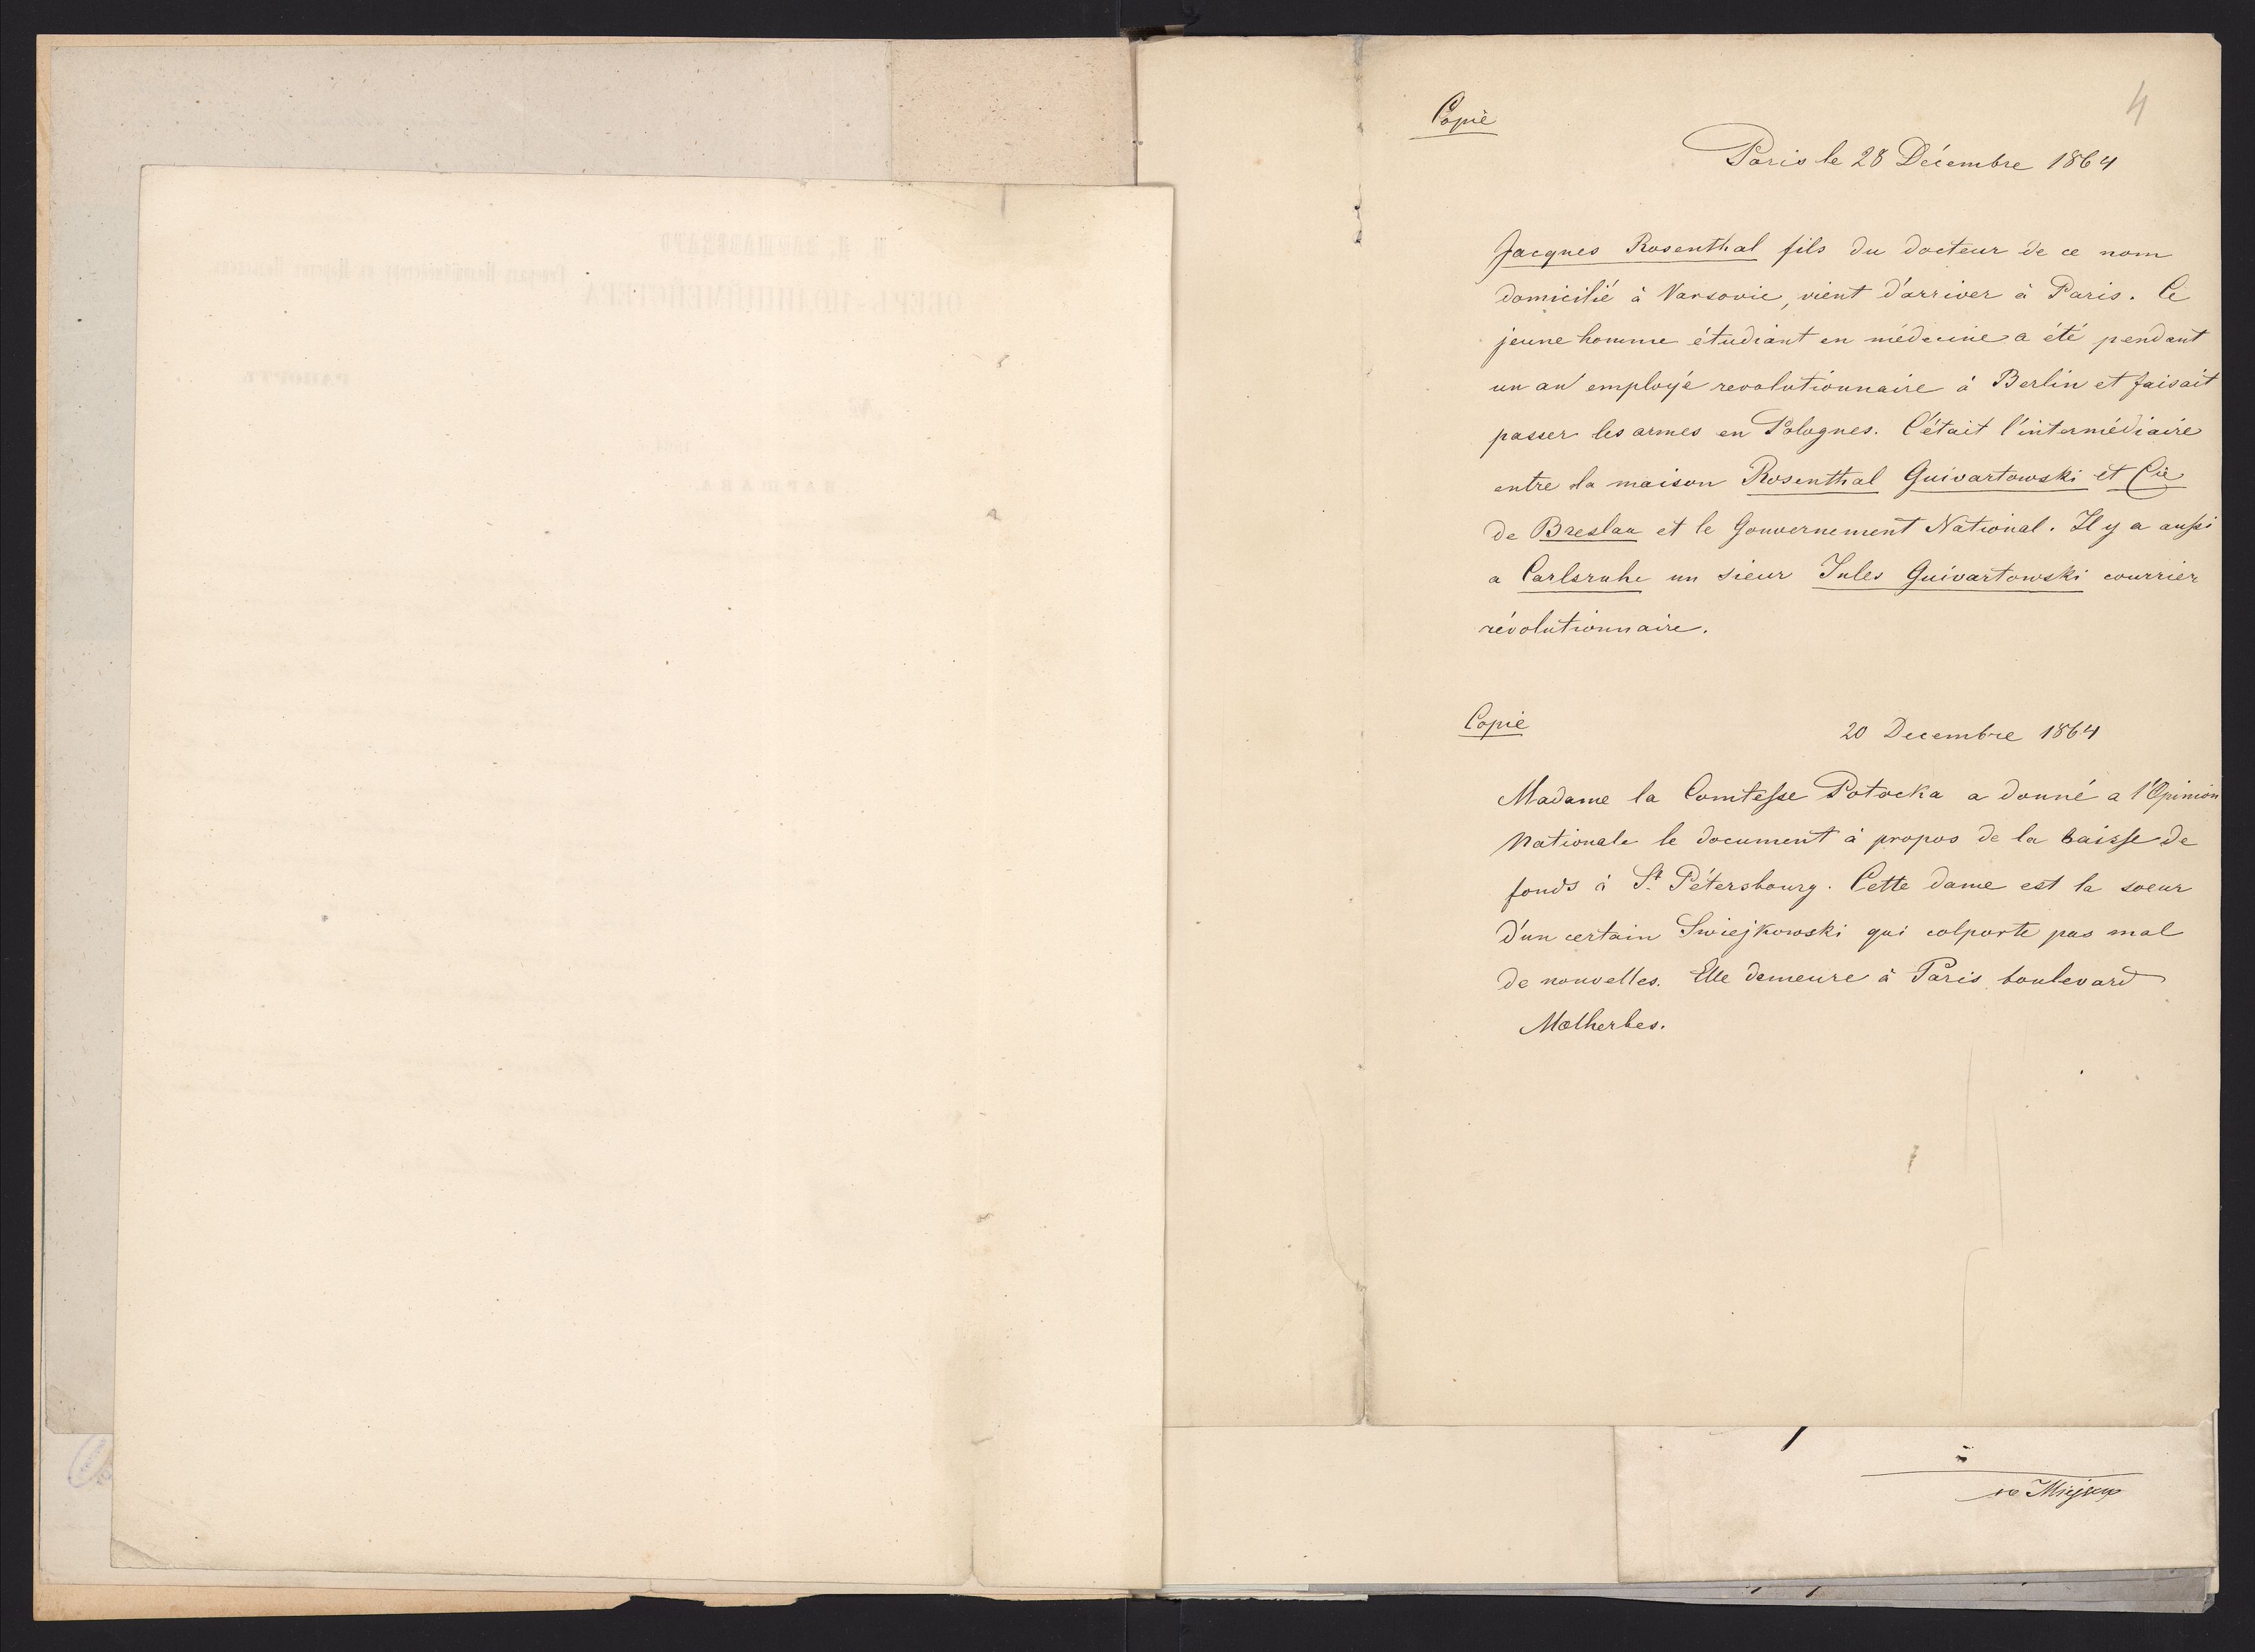 4
Copie
Paris le 28 Décembre 1864
Jacques Rosenthal fils du docteur de ce nom
domicilié à Varsovie, vient d'arriver à Paris. Ce
jeune homme étudiant en médecine a été pendant
un an employé revolutionnaire à Berlin et faisait
passer les armes en Polognes. C'était l'intermédiaire
entre la maison Rosenthal Guivartowski et Cie
de Breslau et le Gouvernement National. Il y a aussi
a Carlsruhe un sieur Jules Guivartowski courrier
révolutionnaire.
Copie
20 Decembre 1864
Madame la Comtesse Potocka a donné a l'Opinion
Nationale le document à propos de la baisse de
fonds à St. Pétersbourg. Cette dame est la soeur
d'un certain Swiejkowski qui colporte pas mal
de nouvelles. Elle demeure à Paris boulevard
Malherbes.
w Miejscu